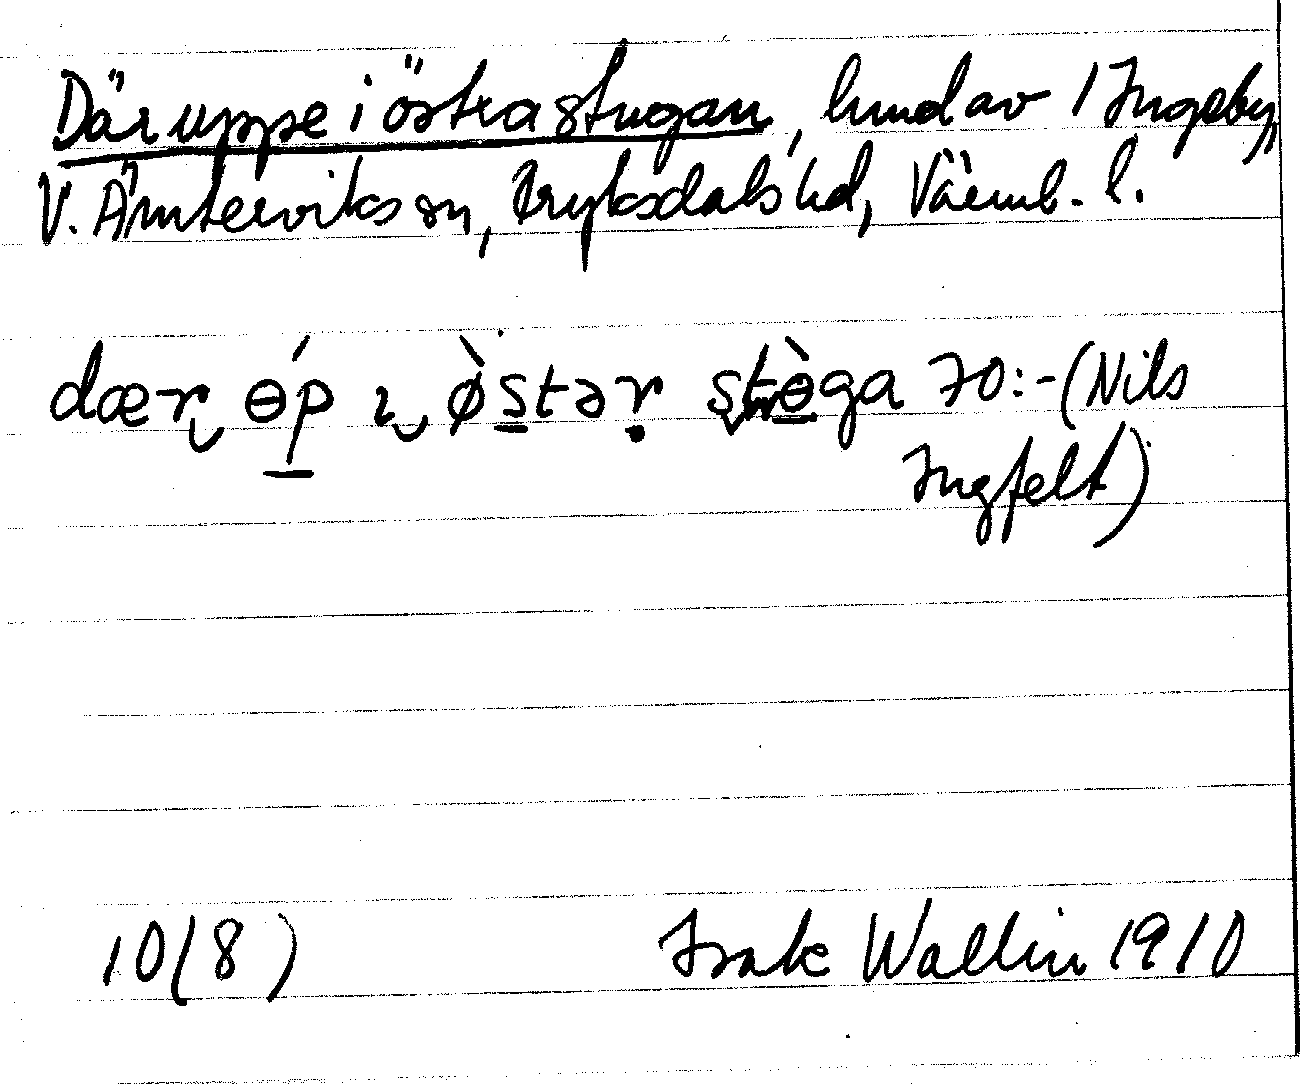 Där uppe i östra stugan, hmd av 1 Ingeby,
V. Ämterviks sn, Fryksdals hd, Värml. l.
dær ɵ́p ɩ ø̀stər stɵ̀ga 70:-(Nils
Ingfelt)
10(8) Isak Wallin 1910